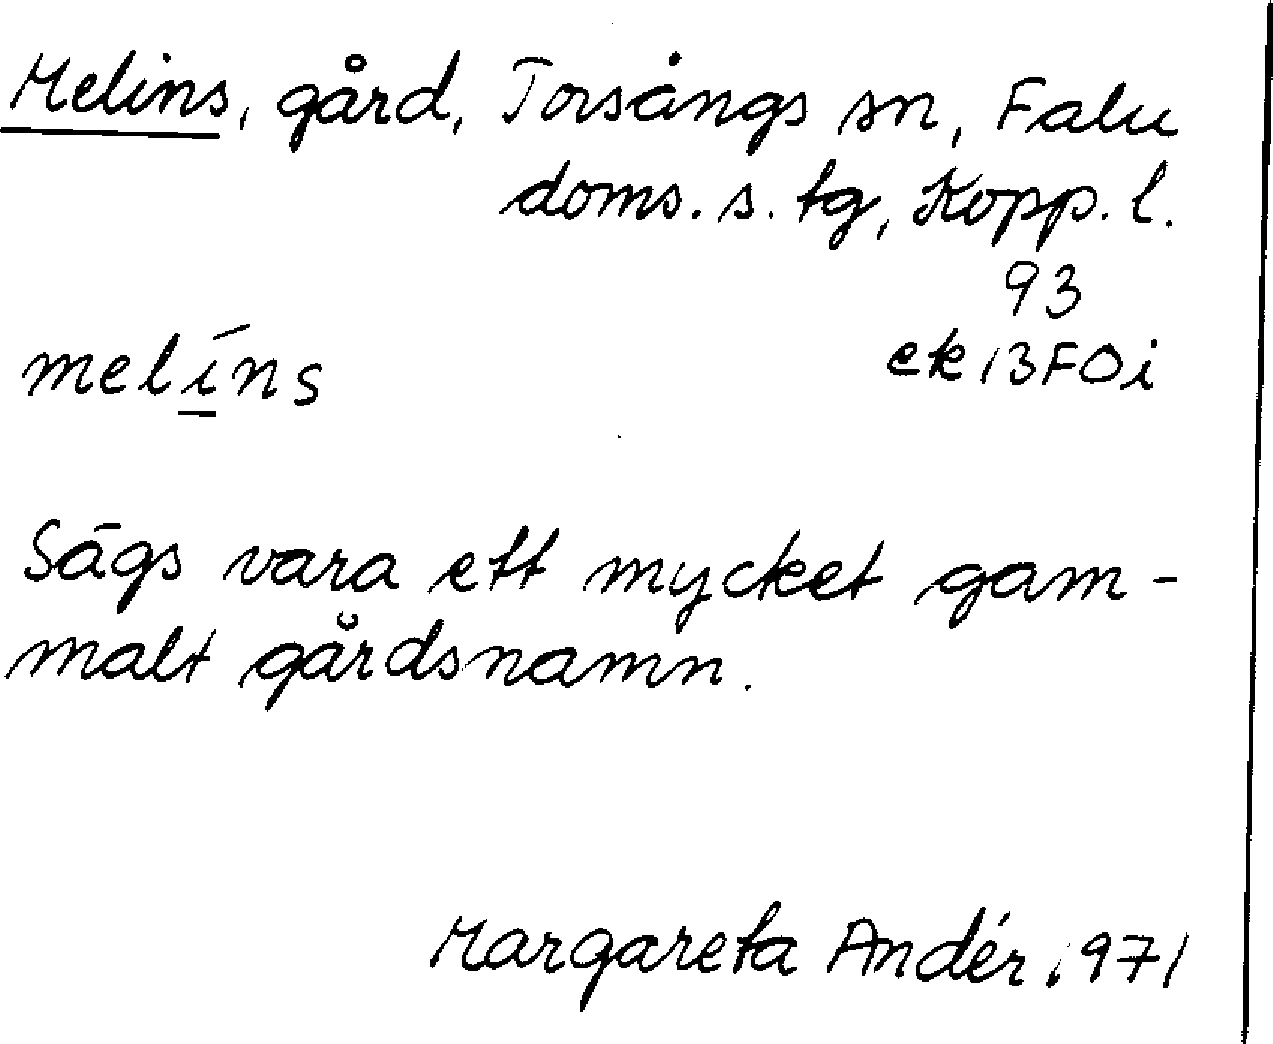 Melins, gård, Torsångs sn, Falu
doms. s. tg, Kopp. l.
93
melíns
ek 13F0i
Sägs vara ett mycket gam-
malt gårdsnamn.
Margareta Andér 1971